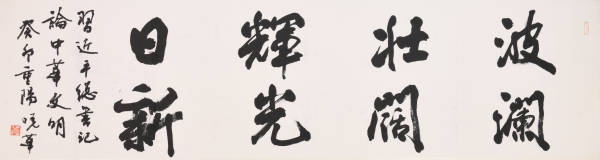 波瀾
壯闊
輝光
日新
習近平總書記
論中華文明
癸卯重陽曉華